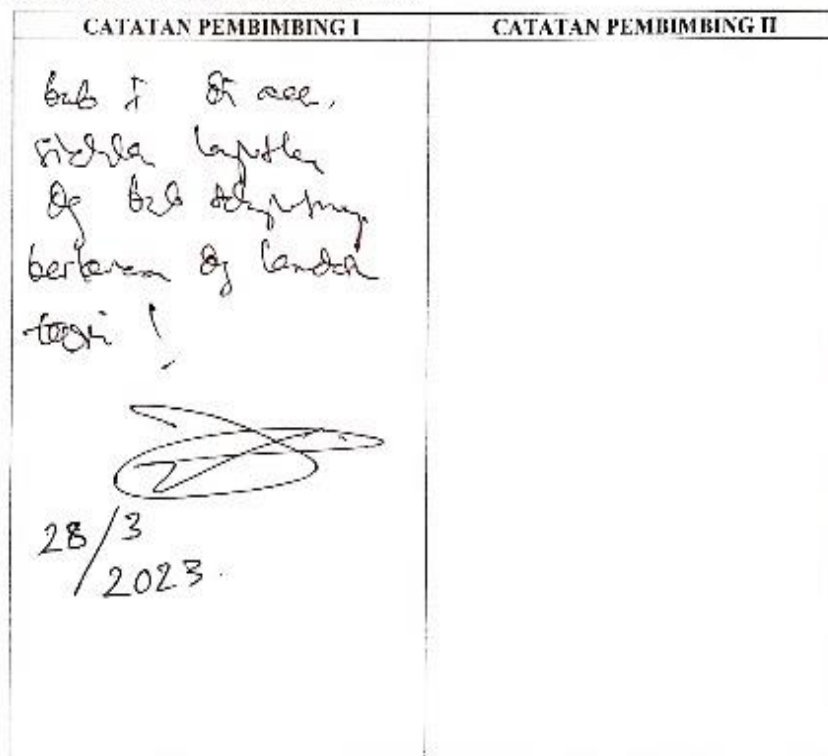 CATATAN PEMBIMBING I
CATATAN PEMBIMBING II
bab I di acc,
silahkan lanjutkan
dg bab
berkenaan dg landasan
teori !
28/3
2023